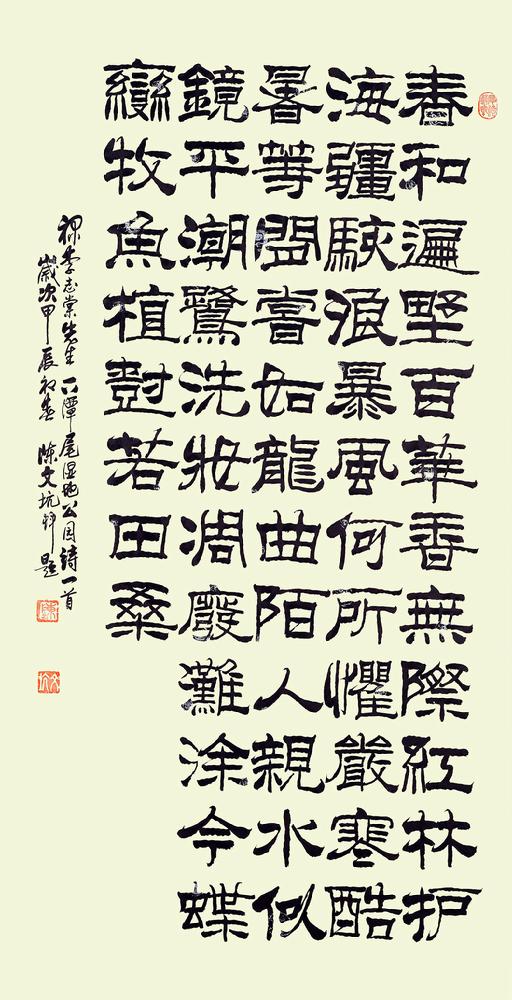 春和遍墅百華香無際紅林护
海疆駭浪暴風何所懼嚴寒酷
暑等閒嘗如龍曲陌人親水似
鏡平潮鷺洗妝凋廢灘涂今蝶
變牧魚植尌若田桑
録李志棠先生下潭尾湿地公园詩一首
歲次甲辰初春 陈文坑題